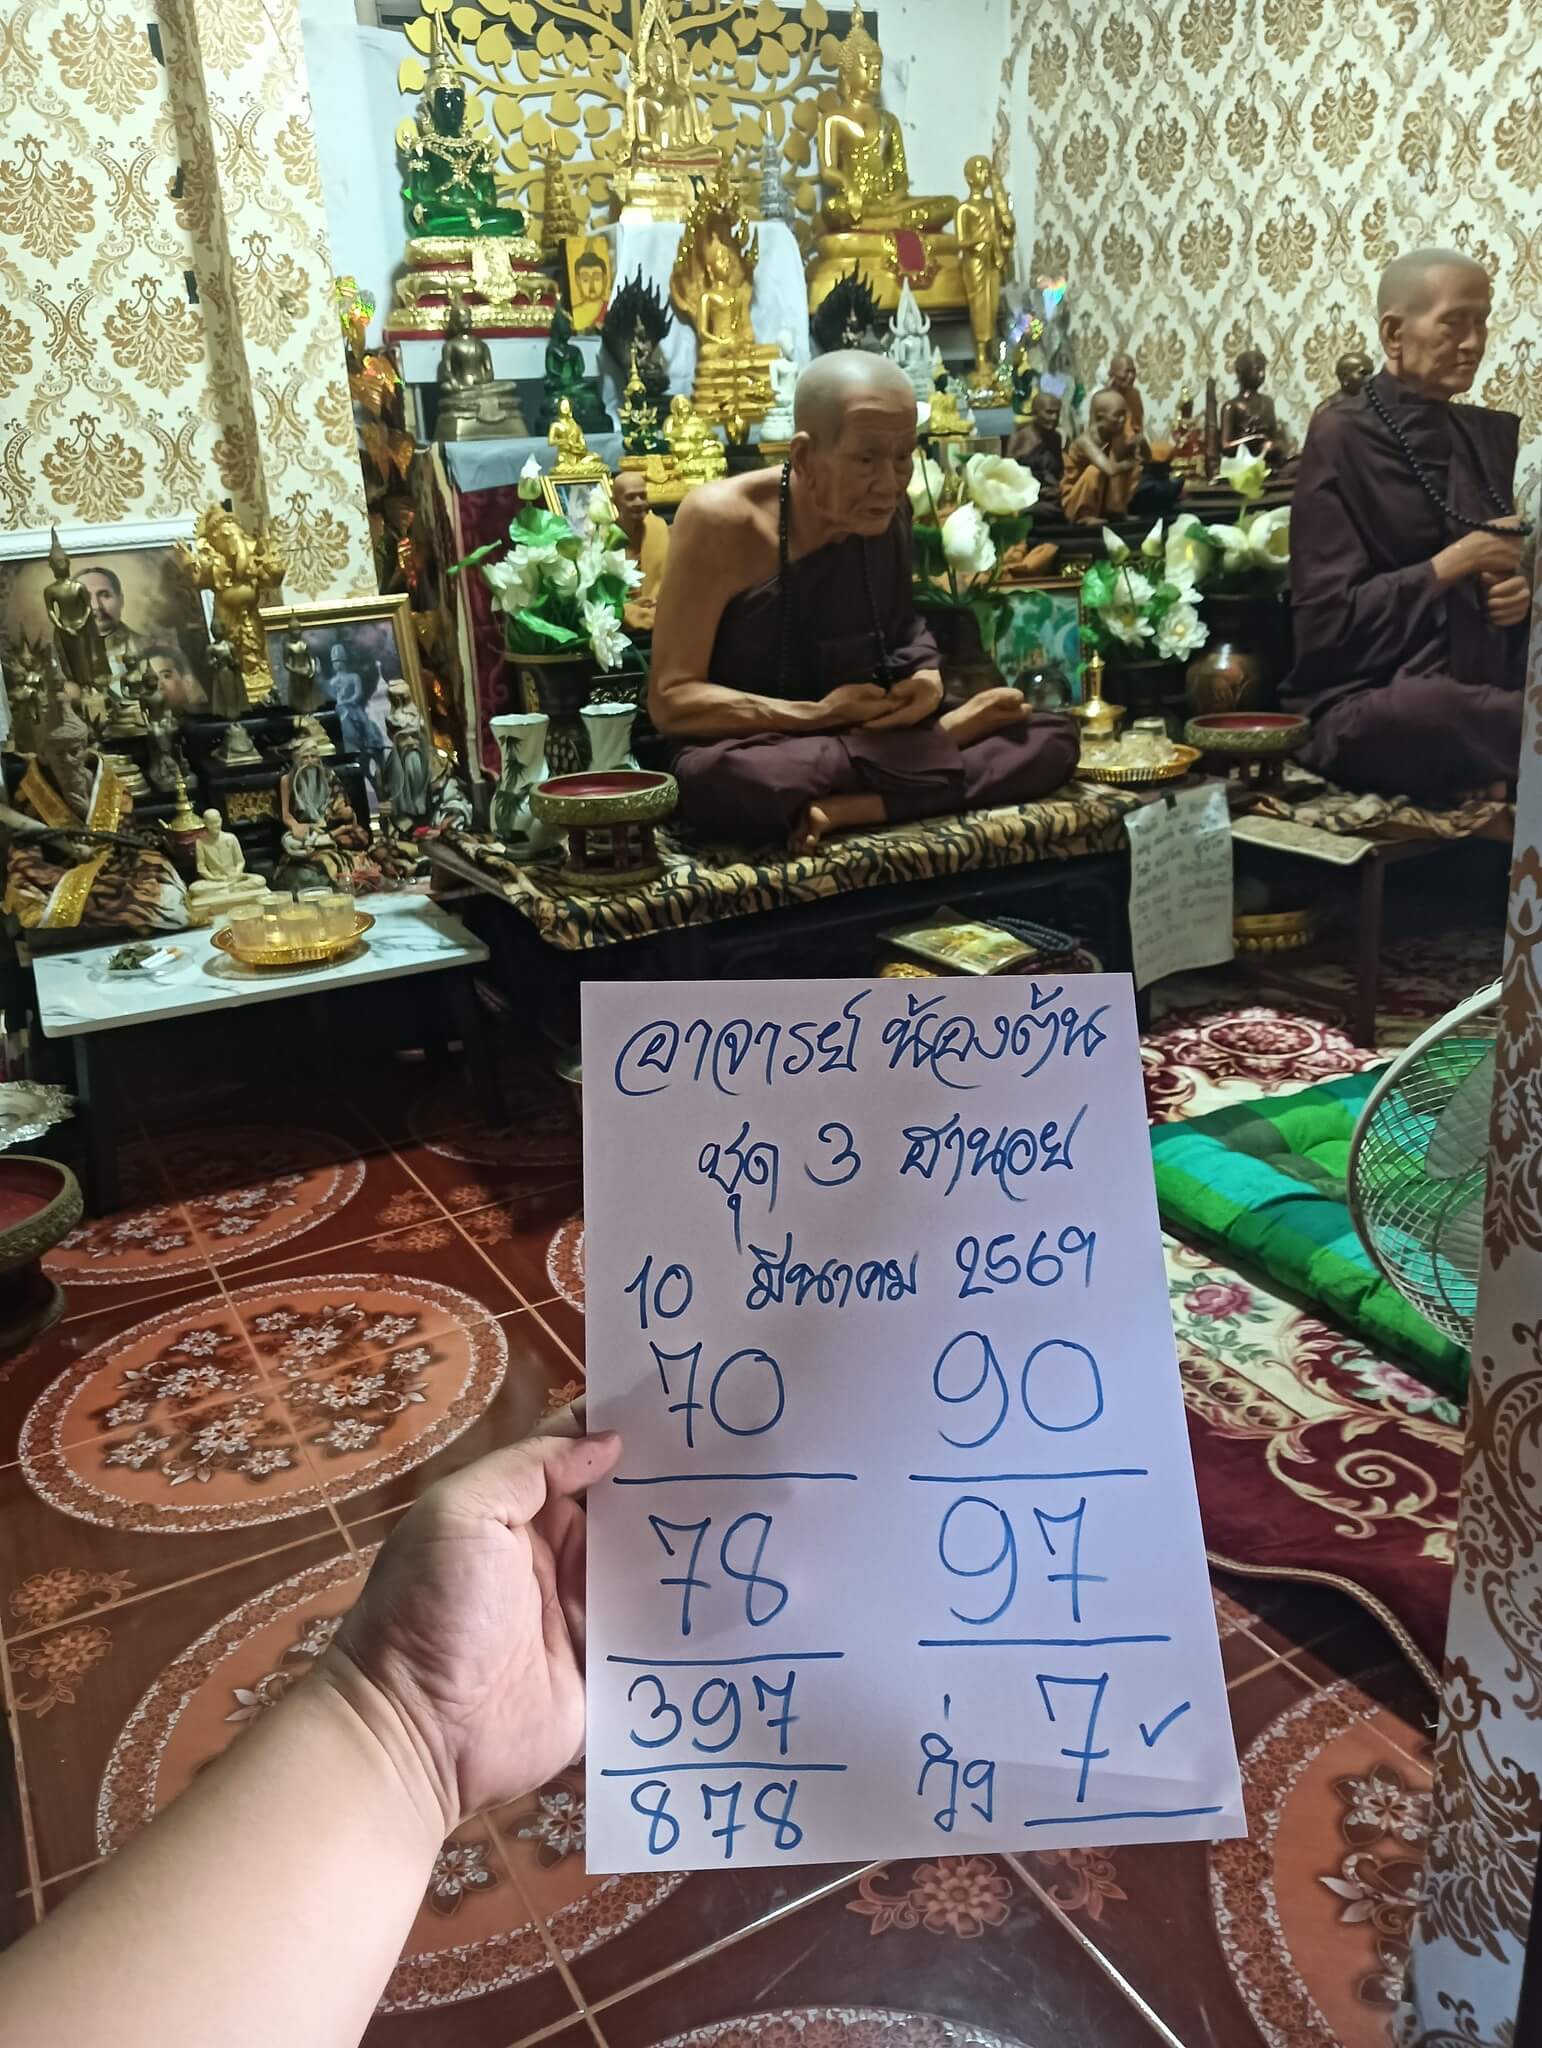 อาจารย์ น้องต้น
ชุด 3 ฮานอย
10 มีนาคม 2569
70 90
78 97
397
878
วิ่ง 7 ✓